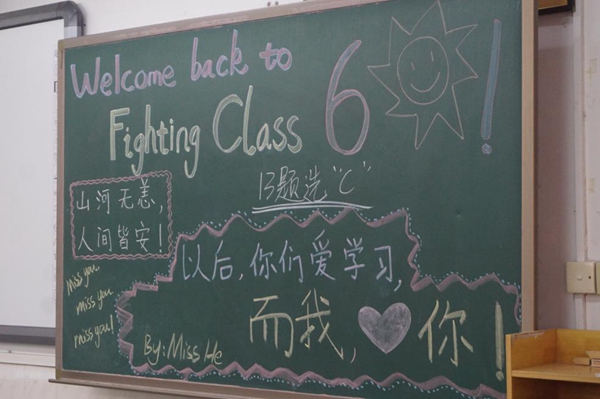 Welcome back to
Fighting Class 6!
13题选“C”
山河无恙,
人间皆安!
以后,你们爱学习,
而我,你!
Miss you
miss you
miss you!
By: Miss He